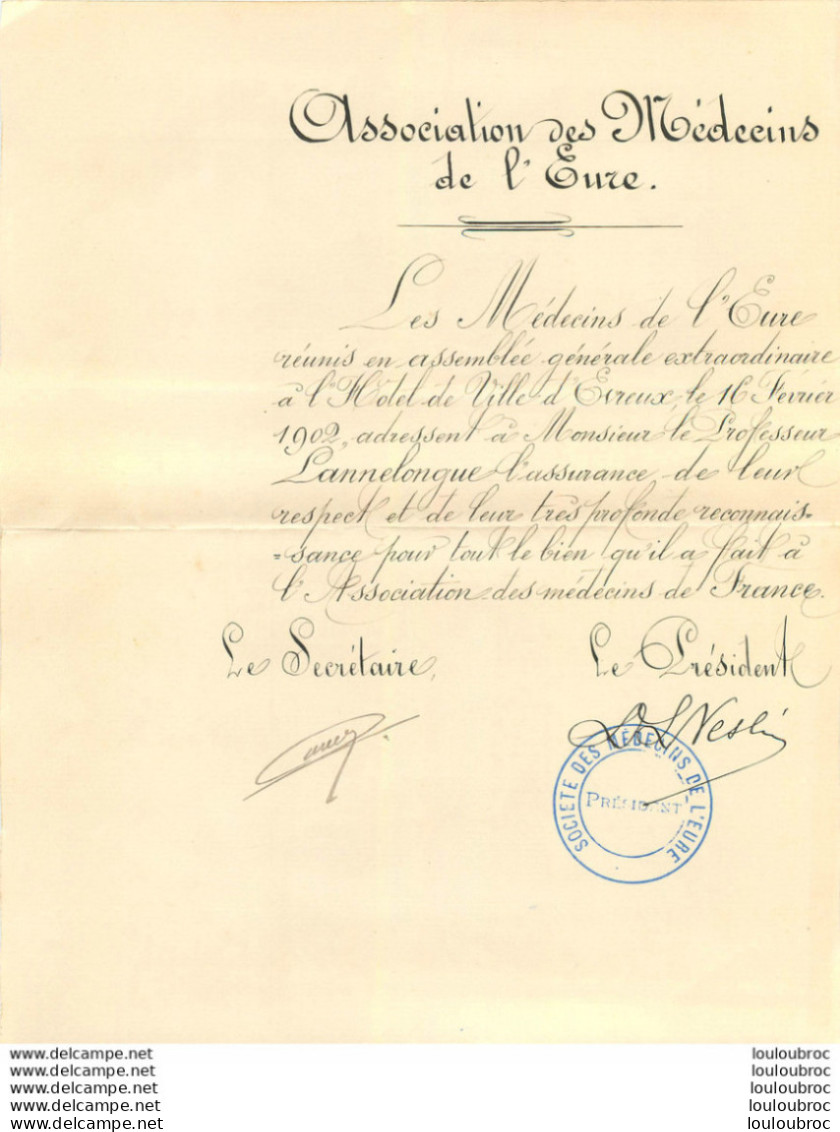 Association des Médecins
de l'Eure.
Les Médecins de l'Eure
réunis en assemblée générale extraordinaire
à l'Hôtel de Ville d'Evreux, le 16 Février
1902, adressent à Monsieur le Professeur
Lannelongue l'assurance de leur
respect et de leur très profonde reconnais=
=sance pour tout le bien qu'il a fait à
l'Association des médecins de France.
Le Secrétaire, Le Président
SOCIETE DES MÉDECINS DE L'EURE
PRÉSIDENT
www.delcampe.net louloubroc
www.delcampe.net louloubroc
www.delcampe.net louloubroc
www.delcampe.net louloubroc
www.delcampe.net louloubroc